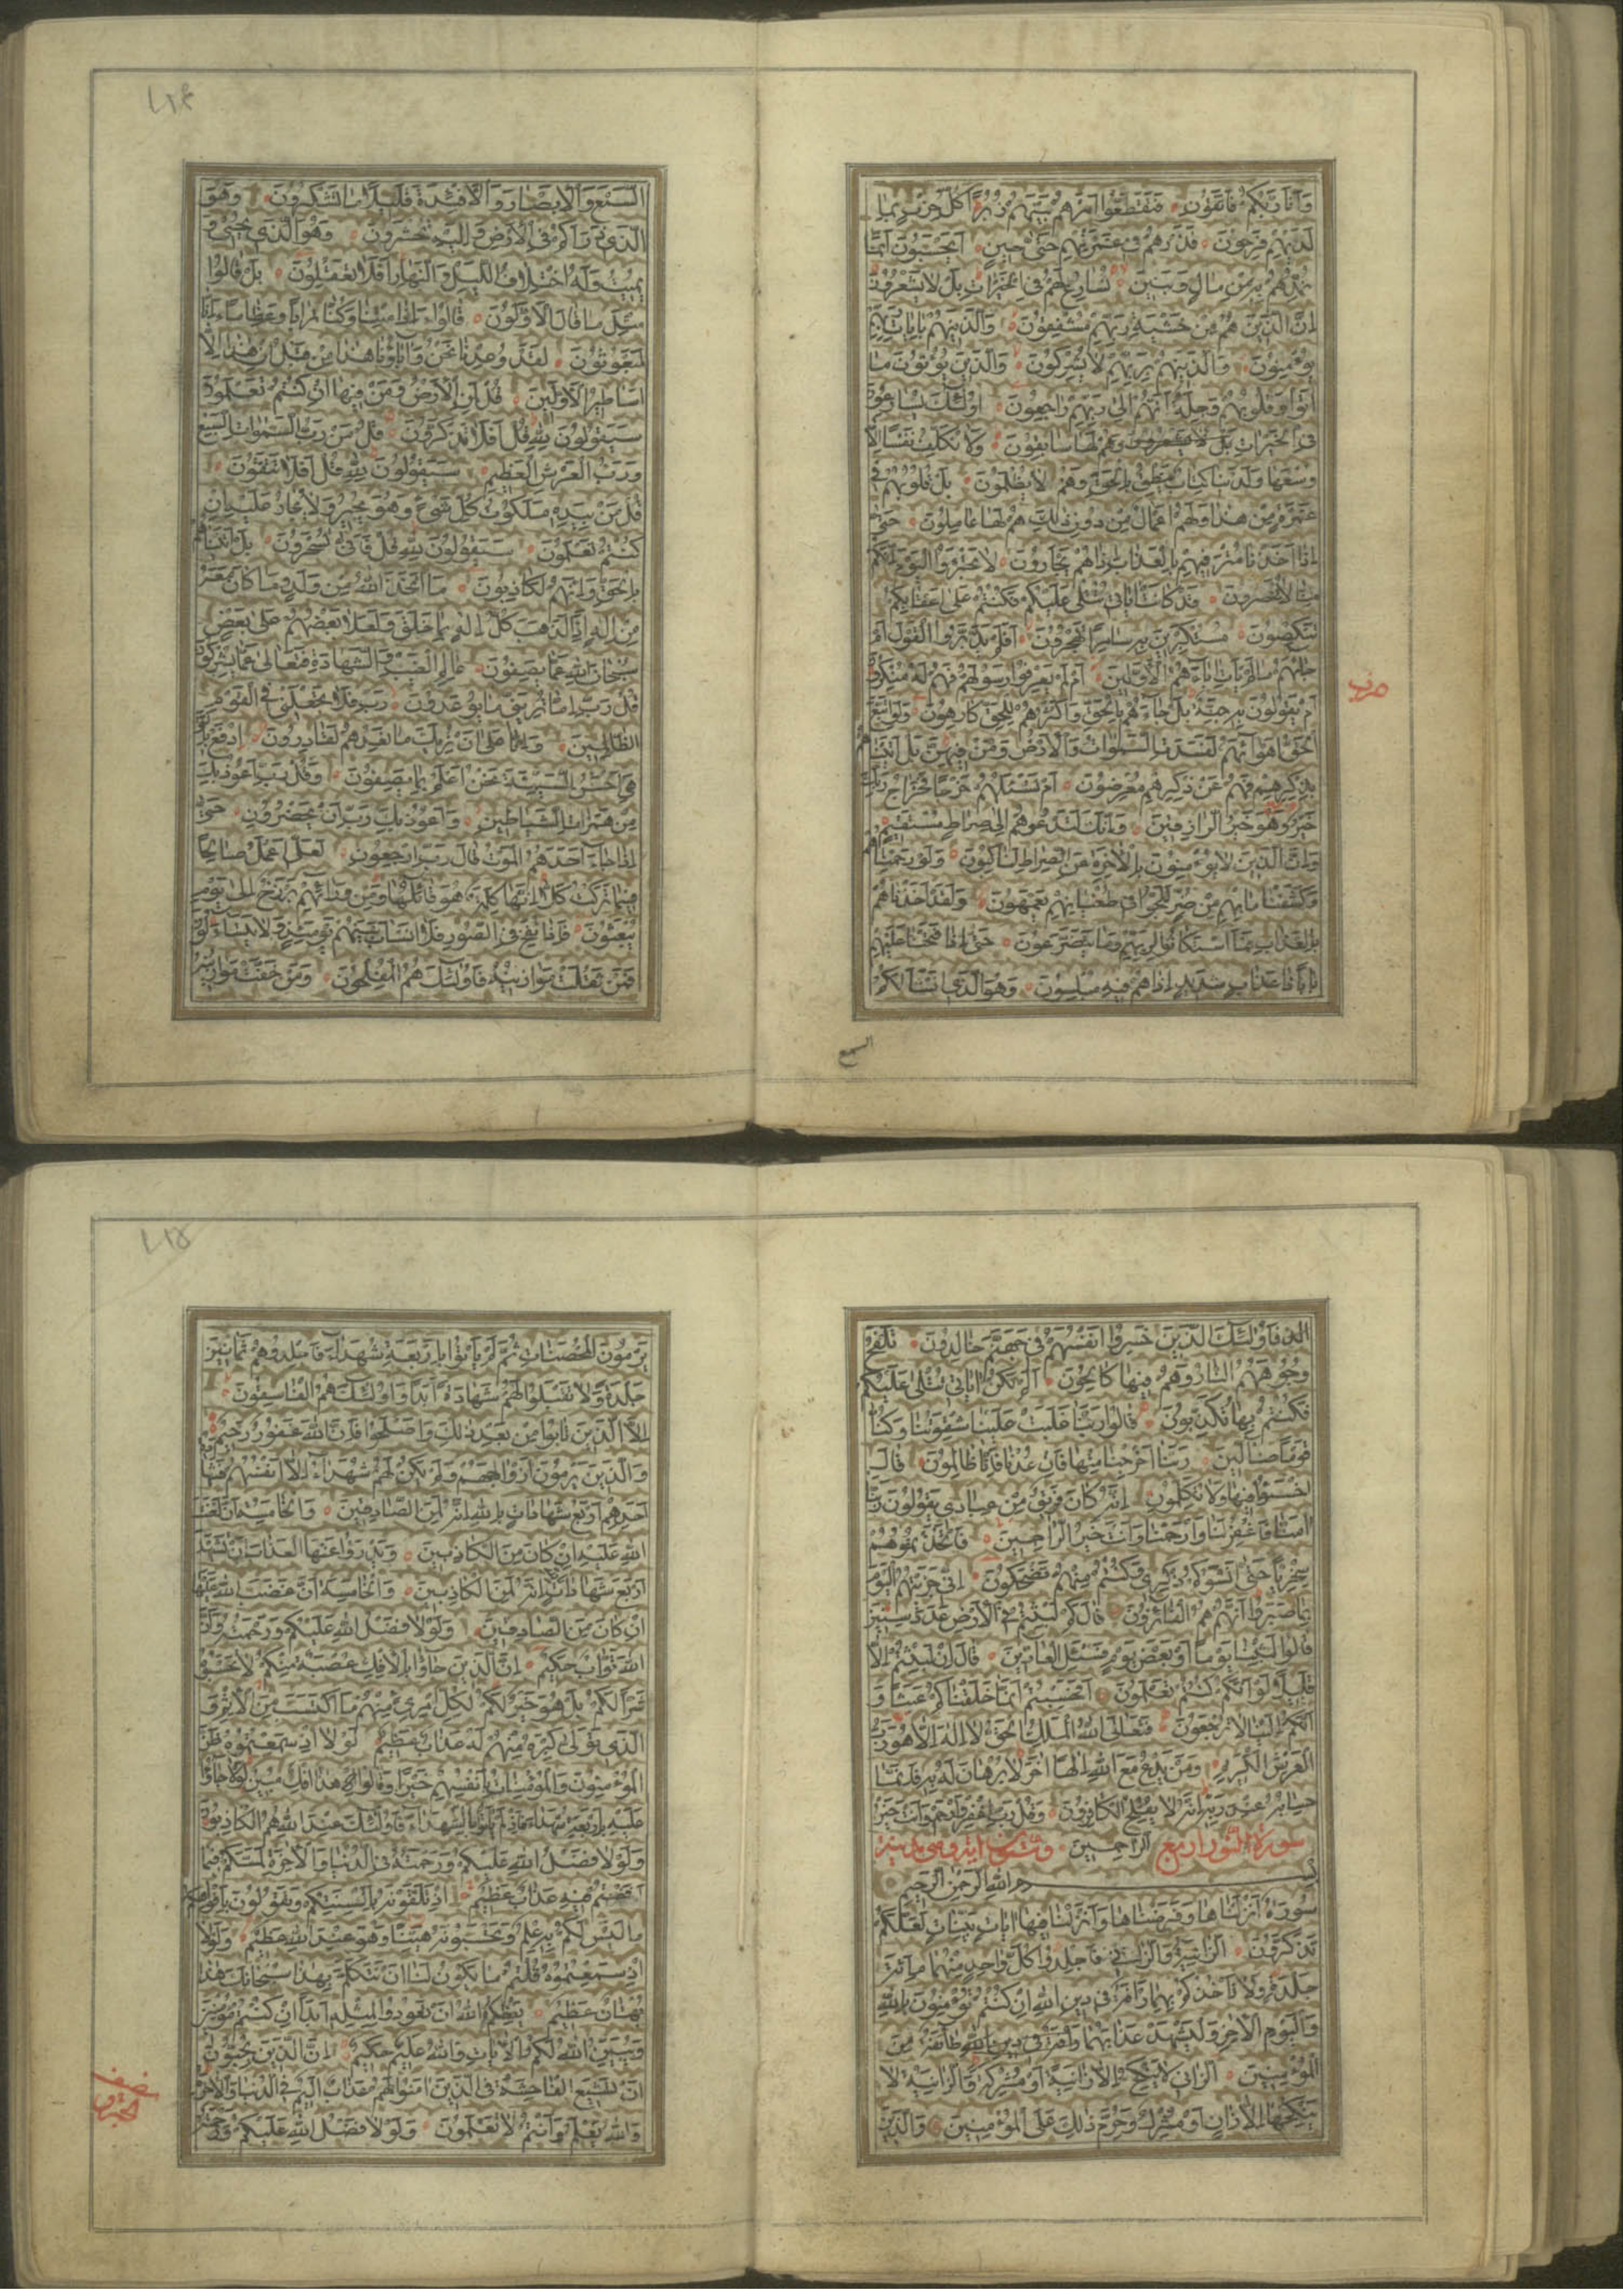 وَاَنَا رَبُّكُمْ فَاتَّقُونِ فَتَقَطَّعُوا اَمْرَهُمْ بَيْنَهُمْ زُبُرًا كُلُّ حِزْبٍ بِمَا
لَدَيْهِمْ فَرِحُونَ فَذَرْهُمْ فِي غَمْرَتِهِمْ حَتّٰى حِينٍ اَيَحْسَبُونَ اَنَّمَا
نُمِدُّهُمْ بِهِ مِنْ مَالٍ وَبَنِينَ نُسَارِعُ لَهُمْ فِي الْخَيْرَاتِ بَلْ لَا يَشْعُرُونَ
اِنَّ الَّذِينَ هُمْ مِنْ خَشْيَةِ رَبِّهِمْ مُشْفِقُونَ وَالَّذِينَ هُمْ بِاٰيَاتِ رَبِّهِمْ
يُؤْمِنُونَ وَالَّذِينَ هُمْ بِرَبِّهِمْ لَا يُشْرِكُونَ وَالَّذِينَ يُؤْتُونَ مَا
اٰتَوْا وَقُلُوبُهُمْ وَجِلَةٌ اَنَّهُمْ اِلٰى رَبِّهِمْ رَاجِعُونَ اُولٰئِكَ يُسَارِعُونَ
فِي الْخَيْرَاتِ بَلْ لَا يَشْعُرُونَ وَهُمْ لَهَا سَابِقُونَ وَلَا نُكَلِّفُ نَفْسًا اِلَّا
وُسْعَهَا وَلَدَيْنَا كِتَابٌ يَنْطِقُ بِالْحَقِّ وَهُمْ لَا يُظْلَمُونَ بَلْ قُلُوبُهُمْ فِي
غَمْرَةٍ مِنْ هٰذَا وَلَهُمْ اَعْمَالٌ مِنْ دُونِ ذٰلِكَ هُمْ لَهَا عَامِلُونَ حَتّٰى
اِذَا اَخَذْنَا مُتْرَفِيهِمْ بِالْعَذَابِ اِذَا هُمْ يَجْاَرُونَ لَا تَجْاَرُوا الْيَوْمَ اِنَّكُمْ
مِنَّا لَا تُنْصَرُونَ قَدْ كَانَتْ اٰيَاتِي تُتْلٰى عَلَيْكُمْ فَكُنْتُمْ عَلٰى اَعْقَابِكُمْ
تَنْكِصُونَ مُسْتَكْبِرِينَ بِهِ سَامِرًا تَهْجُرُونَ اَفَلَمْ يَدَّبَّرُوا الْقَوْلَ اَمْ
جَاءَهُمْ مَا لَمْ يَاْتِ اٰبَاءَهُمُ الْاَوَّلِينَ اَمْ لَمْ يَعْرِفُوا رَسُولَهُمْ فَهُمْ لَهُ مُنْكِرُونَ
اَمْ يَقُولُونَ بِهِ جِنَّةٌ بَلْ جَاءَهُمْ بِالْحَقِّ وَاَكْثَرُهُمْ لِلْحَقِّ كَارِهُونَ وَلَوِ اتَّبَعَ
الْحَقُّ اَهْوَاءَهُمْ لَفَسَدَتِ السَّمٰوَاتُ وَالْاَرْضُ وَمَنْ فِيهِنَّ بَلْ اَتَيْنَاهُمْ
بِذِكْرِهِمْ فَهُمْ عَنْ ذِكْرِهِمْ مُعْرِضُونَ اَمْ تَسْئَلُهُمْ خَرْجًا فَخَرَاجُ رَبِّكَ
خَيْرٌ وَهُوَ خَيْرُ الرَّازِقِينَ وَاِنَّكَ لَتَدْعُوهُمْ اِلٰى صِرَاطٍ مُسْتَقِيمٍ
وَاِنَّ الَّذِينَ لَا يُؤْمِنُونَ بِالْاٰخِرَةِ عَنِ الصِّرَاطِ لَنَاكِبُونَ وَلَوْ رَحِمْنَاهُمْ
وَكَشَفْنَا مَا بِهِمْ مِنْ ضُرٍّ لَلَجُّوا فِي طُغْيَانِهِمْ يَعْمَهُونَ وَلَقَدْ اَخَذْنَاهُمْ
بِالْعَذَابِ فَمَا اسْتَكَانُوا لِرَبِّهِمْ وَمَا يَتَضَرَّعُونَ حَتّٰى اِذَا فَتَحْنَا عَلَيْهِمْ
بَابًا ذَا عَذَابٍ شَدِيدٍ اِذَا هُمْ فِيهِ مُبْلِسُونَ وَهُوَ الَّذِي اَنْشَاَ لَكُمُ
السمع
السَّمْعَ وَالْاَبْصَارَ وَالْاَفْئِدَةَ قَلِيلًا مَا تَشْكُرُونَ وَهُوَ
الَّذِي ذَرَاَكُمْ فِي الْاَرْضِ وَاِلَيْهِ تُحْشَرُونَ وَهُوَ الَّذِي يُحْيِي وَ
يُمِيتُ وَلَهُ اخْتِلَافُ اللَّيْلِ وَالنَّهَارِ اَفَلَا تَعْقِلُونَ بَلْ قَالُوا
مِثْلَ مَا قَالَ الْاَوَّلُونَ قَالُوا ءَاِذَا مِتْنَا وَكُنَّا تُرَابًا وَعِظَامًا ءَاِنَّا
لَمَبْعُوثُونَ لَقَدْ وُعِدْنَا نَحْنُ وَاٰبَاؤُنَا هٰذَا مِنْ قَبْلُ اِنْ هٰذَا اِلَّا
اَسَاطِيرُ الْاَوَّلِينَ قُلْ لِمَنِ الْاَرْضُ وَمَنْ فِيهَا اِنْ كُنْتُمْ تَعْلَمُونَ
سَيَقُولُونَ لِلّٰهِ قُلْ اَفَلَا تَذَكَّرُونَ قُلْ مَنْ رَبُّ السَّمٰوَاتِ السَّبْعِ
وَرَبُّ الْعَرْشِ الْعَظِيمِ سَيَقُولُونَ لِلّٰهِ قُلْ اَفَلَا تَتَّقُونَ
قُلْ مَنْ بِيَدِهِ مَلَكُوتُ كُلِّ شَيْءٍ وَهُوَ يُجِيرُ وَلَا يُجَارُ عَلَيْهِ اِنْ
كُنْتُمْ تَعْلَمُونَ سَيَقُولُونَ لِلّٰهِ قُلْ فَاَنّٰى تُسْحَرُونَ بَلْ اَتَيْنَاهُمْ
بِالْحَقِّ وَاِنَّهُمْ لَكَاذِبُونَ مَا اتَّخَذَ اللّٰهُ مِنْ وَلَدٍ وَمَا كَانَ مَعَهُ
مِنْ اِلٰهٍ اِذًا لَذَهَبَ كُلُّ اِلٰهٍ بِمَا خَلَقَ وَلَعَلَا بَعْضُهُمْ عَلٰى بَعْضٍ
سُبْحَانَ اللّٰهِ عَمَّا يَصِفُونَ عَالِمِ الْغَيْبِ وَالشَّهَادَةِ فَتَعَالٰى عَمَّا يُشْرِكُونَ
قُلْ رَبِّ اِمَّا تُرِيَنِّي مَا يُوعَدُونَ رَبِّ فَلَا تَجْعَلْنِي فِي الْقَوْمِ
الظَّالِمِينَ وَاِنَّا عَلٰى اَنْ نُرِيَكَ مَا نَعِدُهُمْ لَقَادِرُونَ اِدْفَعْ بِالَّتِي
هِيَ اَحْسَنُ السَّيِّئَةَ نَحْنُ اَعْلَمُ بِمَا يَصِفُونَ وَقُلْ رَبِّ اَعُوذُ بِكَ
مِنْ هَمَزَاتِ الشَّيَاطِينِ وَاَعُوذُ بِكَ رَبِّ اَنْ يَحْضُرُونِ حَتّٰى
اِذَا جَاءَ اَحَدَهُمُ الْمَوْتُ قَالَ رَبِّ ارْجِعُونِ لَعَلِّي اَعْمَلُ صَالِحًا
فِيمَا تَرَكْتُ كَلَّا اِنَّهَا كَلِمَةٌ هُوَ قَائِلُهَا وَمِنْ وَرَائِهِمْ بَرْزَخٌ اِلٰى يَوْمِ
يُبْعَثُونَ فَاِذَا نُفِخَ فِي الصُّورِ فَلَا اَنْسَابَ بَيْنَهُمْ يَوْمَئِذٍ وَلَا يَتَسَاءَلُونَ
فَمَنْ ثَقُلَتْ مَوَازِينُهُ فَاُولٰئِكَ هُمُ الْمُفْلِحُونَ وَمَنْ خَفَّتْ مَوَازِينُهُ
فَاُولٰئِكَ الَّذِينَ خَسِرُوا اَنْفُسَهُمْ فِي جَهَنَّمَ خَالِدُونَ تَلْفَحُ
وُجُوهَهُمُ النَّارُ وَهُمْ فِيهَا كَالِحُونَ اَلَمْ تَكُنْ اٰيَاتِي تُتْلٰى عَلَيْكُمْ
فَكُنْتُمْ بِهَا تُكَذِّبُونَ قَالُوا رَبَّنَا غَلَبَتْ عَلَيْنَا شِقْوَتُنَا وَكُنَّا
قَوْمًا ضَالِّينَ رَبَّنَا اَخْرِجْنَا مِنْهَا فَاِنْ عُدْنَا فَاِنَّا ظَالِمُونَ قَالَ
اخْسَئُوا فِيهَا وَلَا تُكَلِّمُونِ اِنَّهُ كَانَ فَرِيقٌ مِنْ عِبَادِي يَقُولُونَ رَبَّنَا
اٰمَنَّا فَاغْفِرْ لَنَا وَارْحَمْنَا وَاَنْتَ خَيْرُ الرَّاحِمِينَ فَاتَّخَذْتُمُوهُمْ
سِخْرِيًّا حَتّٰى اَنْسَوْكُمْ ذِكْرِي وَكُنْتُمْ مِنْهُمْ تَضْحَكُونَ اِنِّي جَزَيْتُهُمُ الْيَوْمَ
بِمَا صَبَرُوا اَنَّهُمْ هُمُ الْفَائِزُونَ قَالَ كَمْ لَبِثْتُمْ فِي الْاَرْضِ عَدَدَ سِنِينَ
قَالُوا لَبِثْنَا يَوْمًا اَوْ بَعْضَ يَوْمٍ فَسْئَلِ الْعَادِّينَ قَالَ اِنْ لَبِثْتُمْ اِلَّا
قَلِيلًا لَوْ اَنَّكُمْ كُنْتُمْ تَعْلَمُونَ اَفَحَسِبْتُمْ اَنَّمَا خَلَقْنَاكُمْ عَبَثًا وَ
اَنَّكُمْ اِلَيْنَا لَا تُرْجَعُونَ فَتَعَالَى اللّٰهُ الْمَلِكُ الْحَقُّ لَا اِلٰهَ اِلَّا هُوَ رَبُّ
الْعَرْشِ الْكَرِيمِ وَمَنْ يَدْعُ مَعَ اللّٰهِ اِلٰهًا اٰخَرَ لَا بُرْهَانَ لَهُ بِهِ فَاِنَّمَا
حِسَابُهُ عِنْدَ رَبِّهِ اِنَّهُ لَا يُفْلِحُ الْكَافِرُونَ وَقُلْ رَبِّ اغْفِرْ وَارْحَمْ وَاَنْتَ خَيْرُ
سورة النور اربع الرَّاحِمِينَ وستون اية وهي مدنية
بِسْمِ اللّٰهِ الرَّحْمٰنِ الرَّحِيمِ
سُورَةٌ اَنْزَلْنَاهَا وَفَرَضْنَاهَا وَاَنْزَلْنَا فِيهَا اٰيَاتٍ بَيِّنَاتٍ لَعَلَّكُمْ
تَذَكَّرُونَ اَلزَّانِيَةُ وَالزَّانِي فَاجْلِدُوا كُلَّ وَاحِدٍ مِنْهُمَا مِائَةَ
جَلْدَةٍ وَلَا تَاْخُذْكُمْ بِهِمَا رَاْفَةٌ فِي دِينِ اللّٰهِ اِنْ كُنْتُمْ تُؤْمِنُونَ بِاللّٰهِ
وَالْيَوْمِ الْاٰخِرِ وَلْيَشْهَدْ عَذَابَهُمَا رَاْفَةٌ فِي دِينِ اللّٰهِ طَائِفَةٌ مِنَ
الْمُؤْمِنِينَ اَلزَّانِي لَا يَنْكِحُ اِلَّا زَانِيَةً اَوْ مُشْرِكَةً وَالزَّانِيَةُ لَا
يَنْكِحُهَا اِلَّا زَانٍ اَوْ مُشْرِكٌ وَحُرِّمَ ذٰلِكَ عَلَى الْمُؤْمِنِينَ وَالَّذِينَ
يَرْمُونَ الْمُحْصَنَاتِ ثُمَّ لَمْ يَاْتُوا بِاَرْبَعَةِ شُهَدَاءَ فَاجْلِدُوهُمْ ثَمَانِينَ
جَلْدَةً وَلَا تَقْبَلُوا لَهُمْ شَهَادَةً اَبَدًا وَاُولٰئِكَ هُمُ الْفَاسِقُونَ
اِلَّا الَّذِينَ تَابُوا مِنْ بَعْدِ ذٰلِكَ وَاَصْلَحُوا فَاِنَّ اللّٰهَ غَفُورٌ رَحِيمٌ
وَالَّذِينَ يَرْمُونَ اَزْوَاجَهُمْ وَلَمْ يَكُنْ لَهُمْ شُهَدَاءُ اِلَّا اَنْفُسُهُمْ فَشَهَادَةُ
اَحَدِهِمْ اَرْبَعُ شَهَادَاتٍ بِاللّٰهِ اِنَّهُ لَمِنَ الصَّادِقِينَ وَالْخَامِسَةُ اَنَّ لَعْنَتَ
اللّٰهِ عَلَيْهِ اِنْ كَانَ مِنَ الْكَاذِبِينَ وَيَدْرَؤُا عَنْهَا الْعَذَابَ اَنْ تَشْهَدَ
اَرْبَعَ شَهَادَاتٍ بِاللّٰهِ اِنَّهُ لَمِنَ الْكَاذِبِينَ وَالْخَامِسَةَ اَنَّ غَضَبَ اللّٰهِ عَلَيْهَا
اِنْ كَانَ مِنَ الصَّادِقِينَ وَلَوْلَا فَضْلُ اللّٰهِ عَلَيْكُمْ وَرَحْمَتُهُ وَاَنَّ
اللّٰهَ تَوَّابٌ حَكِيمٌ اِنَّ الَّذِينَ جَاؤُا بِالْاِفْكِ عُصْبَةٌ مِنْكُمْ لَا تَحْسَبُوهُ
شَرًّا لَكُمْ بَلْ هُوَ خَيْرٌ لَكُمْ لِكُلِّ امْرِئٍ مِنْهُمْ مَا اكْتَسَبَ مِنَ الْاِثْمِ وَ
الَّذِي تَوَلّٰى كِبْرَهُ مِنْهُمْ لَهُ عَذَابٌ عَظِيمٌ لَوْلَا اِذْ سَمِعْتُمُوهُ ظَنَّ
الْمُؤْمِنُونَ وَالْمُؤْمِنَاتُ بِاَنْفُسِهِمْ خَيْرًا وَقَالُوا هٰذَا اِفْكٌ مُبِينٌ لَوْلَا جَاؤُا
عَلَيْهِ بِاَرْبَعَةِ شُهَدَاءَ فَاِذْ لَمْ يَاْتُوا بِالشُّهَدَاءِ فَاُولٰئِكَ عِنْدَ اللّٰهِ هُمُ الْكَاذِبُونَ
وَلَوْلَا فَضْلُ اللّٰهِ عَلَيْكُمْ وَرَحْمَتُهُ فِي الدُّنْيَا وَالْاٰخِرَةِ لَمَسَّكُمْ فِيمَا
اَفَضْتُمْ فِيهِ عَذَابٌ عَظِيمٌ اِذْ تَلَقَّوْنَهُ بِاَلْسِنَتِكُمْ وَتَقُولُونَ بِاَفْوَاهِكُمْ
مَا لَيْسَ لَكُمْ بِهِ عِلْمٌ وَتَحْسَبُونَهُ هَيِّنًا وَهُوَ عِنْدَ اللّٰهِ عَظِيمٌ وَلَوْلَا
اِذْ سَمِعْتُمُوهُ قُلْتُمْ مَا يَكُونُ لَنَا اَنْ نَتَكَلَّمَ بِهٰذَا سُبْحَانَكَ هٰذَا
بُهْتَانٌ عَظِيمٌ يَعِظُكُمُ اللّٰهُ اَنْ تَعُودُوا لِمِثْلِهِ اَبَدًا اِنْ كُنْتُمْ مُؤْمِنِينَ
وَيُبَيِّنُ اللّٰهُ لَكُمُ الْاٰيَاتِ وَاللّٰهُ عَلِيمٌ حَكِيمٌ اِنَّ الَّذِينَ يُحِبُّونَ
اَنْ تَشِيعَ الْفَاحِشَةُ فِي الَّذِينَ اٰمَنُوا لَهُمْ عَذَابٌ اَلِيمٌ فِي الدُّنْيَا وَالْاٰخِرَةِ
وَاللّٰهُ يَعْلَمُ وَاَنْتُمْ لَا تَعْلَمُونَ وَلَوْلَا فَضْلُ اللّٰهِ عَلَيْكُمْ وَرَحْمَتُهُ